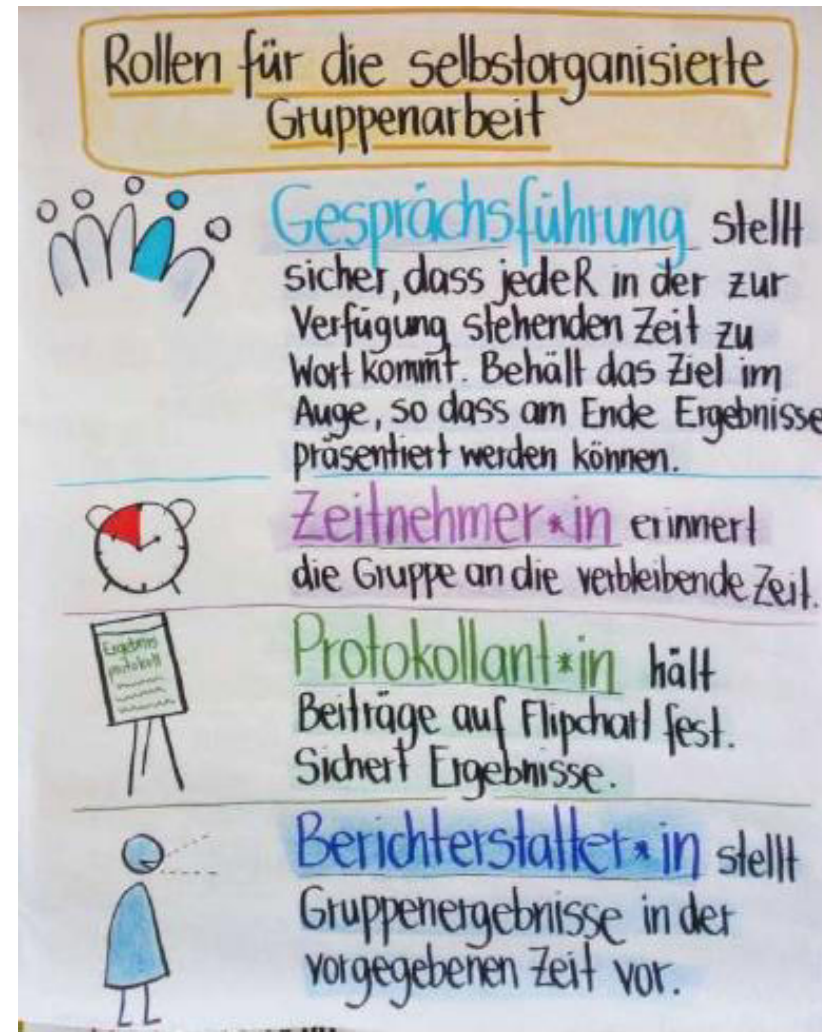 Rollen für die selbstorganisierte
Gruppenarbeit
Gesprächsführung stellt
sicher, dass jedeR in der zur
Verfügung stehenden Zeit zu
Wort kommt. Behält das Ziel im
Auge, so dass am Ende Ergebnisse
präsentiert werden können.
Zeitnehmer*in erinnert
die Gruppe an die verbleibende Zeit.
Ergebnis
protokoll
Protokollant*in hält
Beiträge auf Flipchart fest.
Sichert Ergebnisse.
Berichterstatter*in stellt
Gruppenergebnisse in der
vorgegebenen Zeit vor.